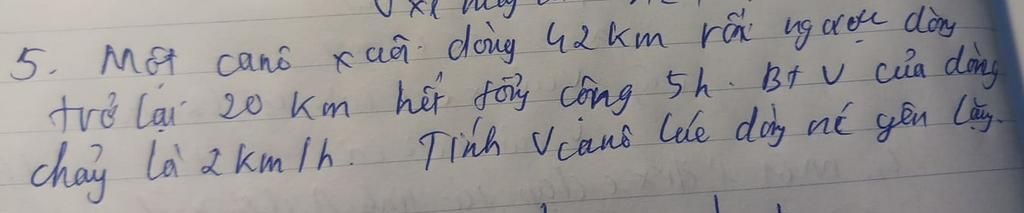 5. Một canô xuôi dòng 42 km rồi ngược dòng
trở lại 20 km hết tổng cộng 5h. Bt V của dòng
chảy là 2 km/h. Tính Vcanô lúc dòng nc yên lặng.